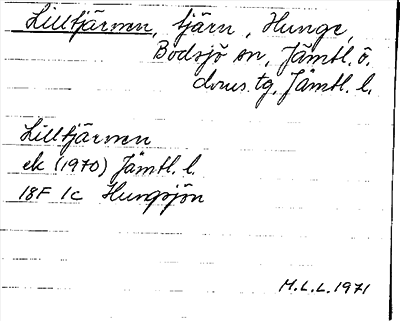 Lilltjärnen, tjärn, Hunge,
Bodsjö sn, Jämtl. ö.
dvms. tg, Jämtl. l.
Lilltjärnen
ek (1970) Jämtl. l.
18F 1c Hungsjön
M.L.L. 1971